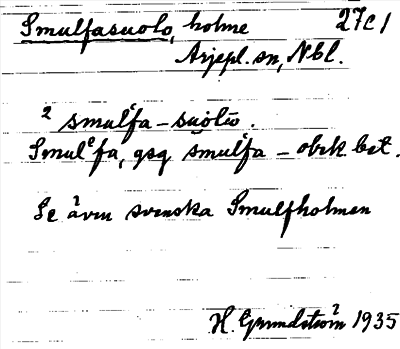 Smulfasuolo, holme 27c1
Arjepl. sn, Nbl.
² smulᵉfa – suolů.
Smulᵉfa, gsg smulᵉfa – obek. bet.
Se även svenska Smulfholmen
H. Grundström 1935